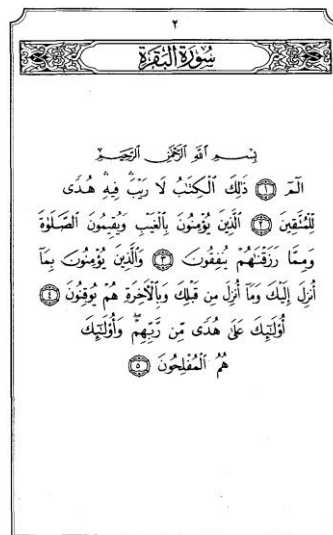 ٢
سُورَةُ الْبَقَرَةِ
بِسْمِ اللَّهِ الرَّحْمَٰنِ الرَّحِيمِ
الٓمٓ ۝١ ذَٰلِكَ الْكِتَٰبُ لَا رَيْبَ ۛ فِيهِ ۛ هُدًى
لِّلْمُتَّقِينَ ۝٢ الَّذِينَ يُؤْمِنُونَ بِالْغَيْبِ وَيُقِيمُونَ الصَّلَوٰةَ
وَمِمَّا رَزَقْنَٰهُمْ يُنفِقُونَ ۝٣ وَالَّذِينَ يُؤْمِنُونَ بِمَآ
أُنزِلَ إِلَيْكَ وَمَآ أُنزِلَ مِن قَبْلِكَ وَبِالْءَاخِرَةِ هُمْ يُوقِنُونَ ۝٤
أُو۟لَٰٓئِكَ عَلَىٰ هُدًى مِّن رَّبِّهِمْ ۖ وَأُو۟لَٰٓئِكَ
هُمُ الْمُفْلِحُونَ ۝٥